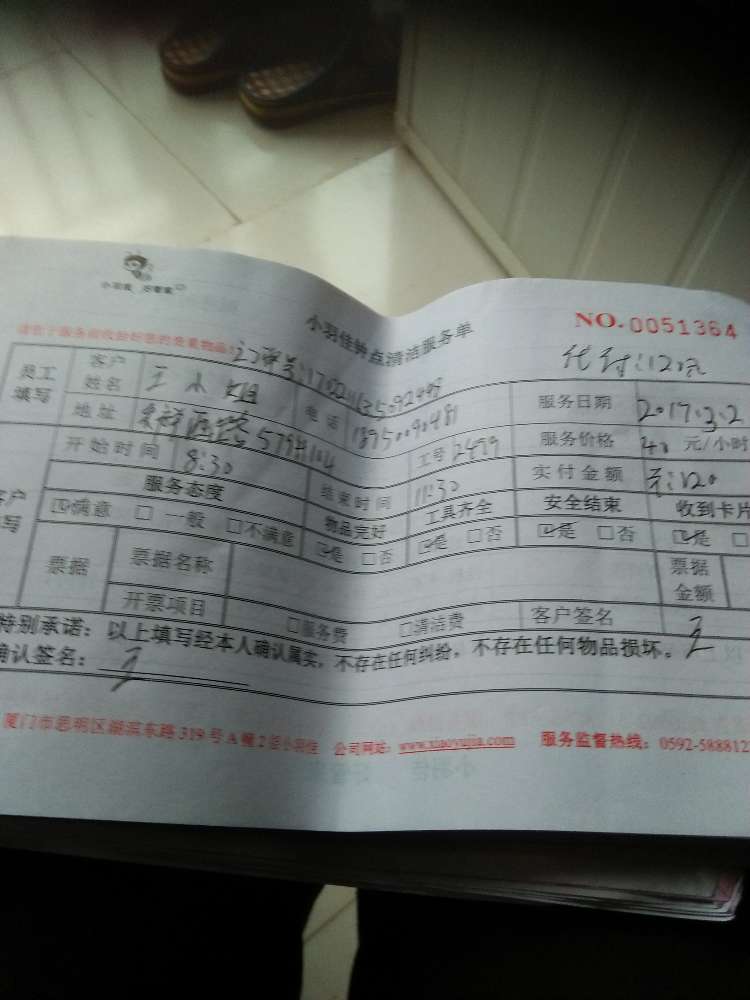 小羽佳 好管家
小羽佳钟点清洁服务单
NO. 0051364
请您于服务前收拾好您的贵重物品!
代付:120元
员工填写
客户姓名 王小姐
电话 13950090481
服务日期 2017.3.2
地址
工号 2499
服务价格 40 元/小时
开始时间 8:30
结束时间 11:30
实付金额 120
服务态度 物品完好 工具齐全 安全结束 收到卡片
☑满意 □一般 □不满意 ☑是 □否 ☑是 □否 ☑是 □否 ☑是 □
票据
票据名称
票据金额
开票项目 □服务费 □清洁费 客户签名 王
特别承诺:以上填写经本人确认属实,不存在任何纠纷,不存在任何物品损坏。
确认签名: 王
厦门市思明区湖滨东路319号A幢2层小羽佳 公司网站:www.xiaoyujia.com 服务监督热线:0592-588812